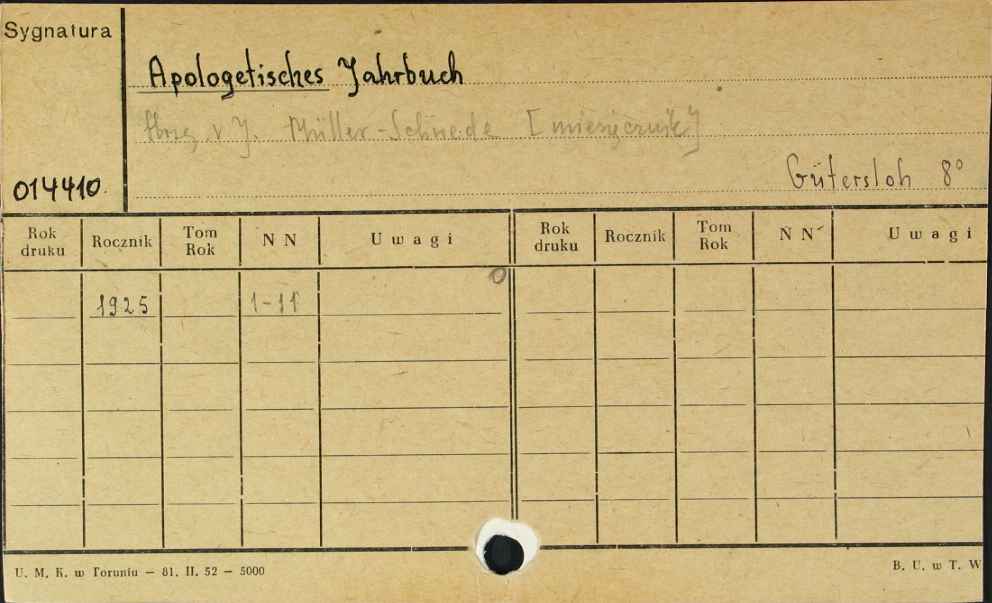 Sygnatura
Apologetisches Jahrbuch
Hrsg. v J. Müller-Schneide [miesięcznik]
Gütersloh 8°
014410
Rok druku Rocznik Tom Rok N N Uwagi Rok druku Rocznik Tom Rok N N Uwagi
1925 1-11
U. M. K. w Toruniu — 81. II. 52 — 5000
B. U. w T. W